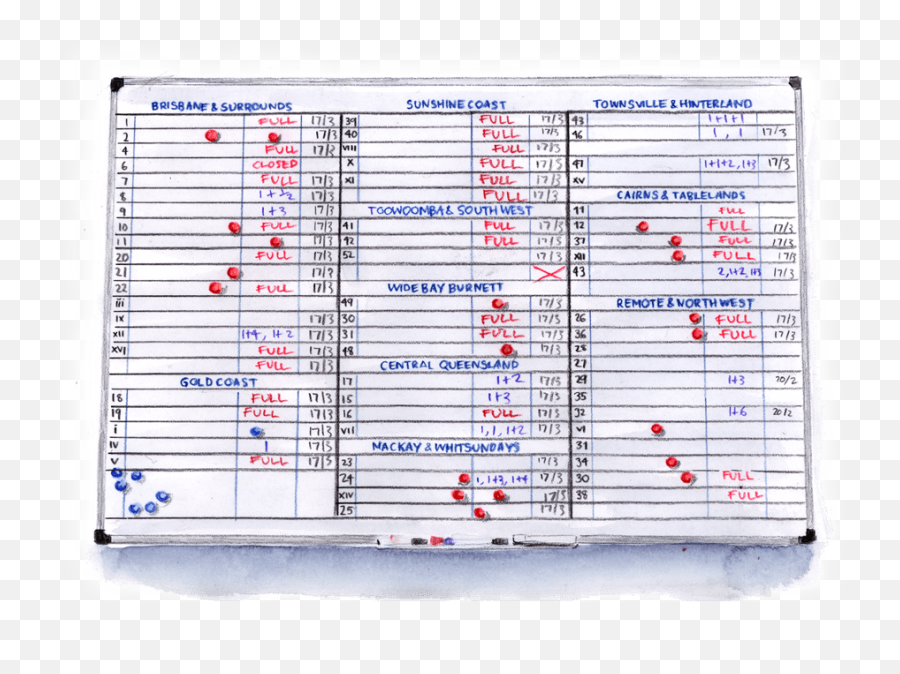 BRISBANE & SURROUNDS
1 FULL 17/3
2 17/3
4 FULL 17/2
6 CLOSED
7 FULL 17/3
8 17/3
9 1+3 17/3
10 FULL 17/3
11 17/3
20 FULL 17/3
21 17/?
22 FULL 17/3
iii
ix 17/3
xii 1+4, 1+2 17/3
XVI FULL 17/3
FULL 17/3
GOLD COAST
18 FULL 17/3
19 FULL 17/3
i 17/3
iv 1 17/3
v FULL 17/3
SUNSHINE COAST
39 FULL 17/3
40 FULL 17/3
VIII FULL 17/3
X FULL 17/3
XI FULL 17/3
FULL 17/3
TOOWOOMBA & SOUTH WEST
41 FULL 17/3
42 FULL 17/3
52 17/3
WIDE BAY BURNETT
49 17/3
30 FULL 17/3
31 FULL 17/3
48 17/3
CENTRAL QUEENSLAND
17 1+2 17/3
15 1+3 17/3
16 FULL 17/3
VII 1, 1, 1+2 17/3
MACKAY & WHITSUNDAYS
23 17/3
24 1, 1+3, 1+4 17/3
XIV 17/3
25 17/3
TOWNSVILLE & HINTERLAND
43 1+1+1
46 1, 1 17/3
47 1+1+2, 1+3 17/3
XV
CAIRNS & TABLELANDS
FULL
42 FULL 17/3
37 FULL 17/3
XII FULL 17/3
43 2, 1+2, 1+3 17/3
REMOTE & NORTH WEST
26 FULL 17/3
36 FULL 17/3
28
27
29 1+3 20/2
35
32 1+6 20/2
VI
31
34
30 FULL
38 FULL